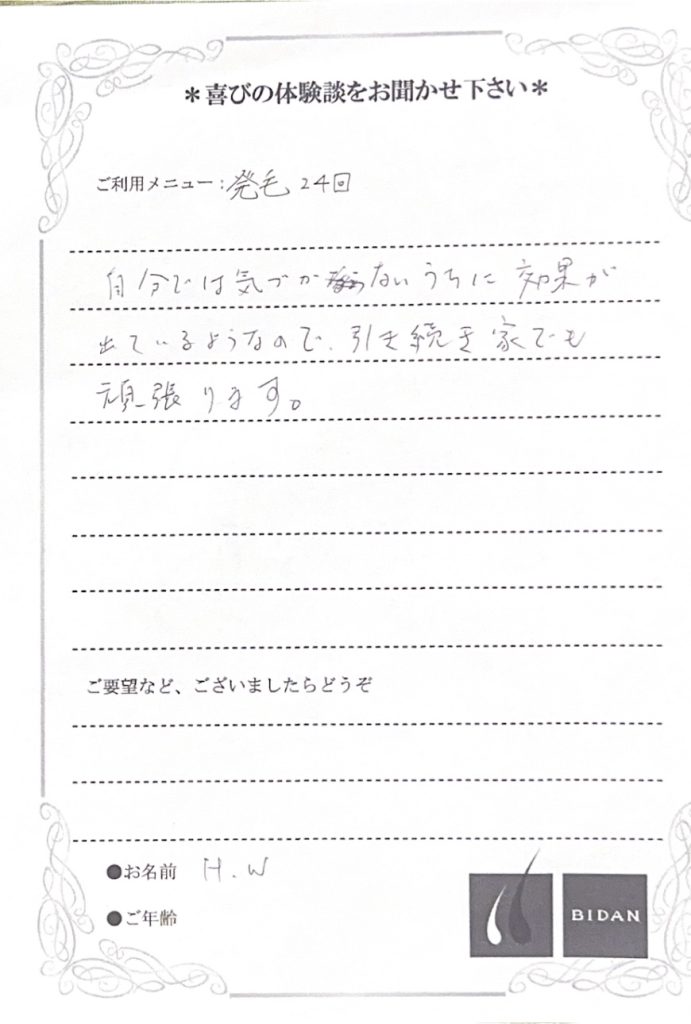 ＊喜びの体験談をお聞かせ下さい＊
ご利用メニュー：発毛 24回
自分では気づかないうちに 効果が
出ているようなので、引き続き 家でも
頑張ります。
ご要望など、ございましたらどうぞ
●お名前 H.W
●ご年齢
BIDAN